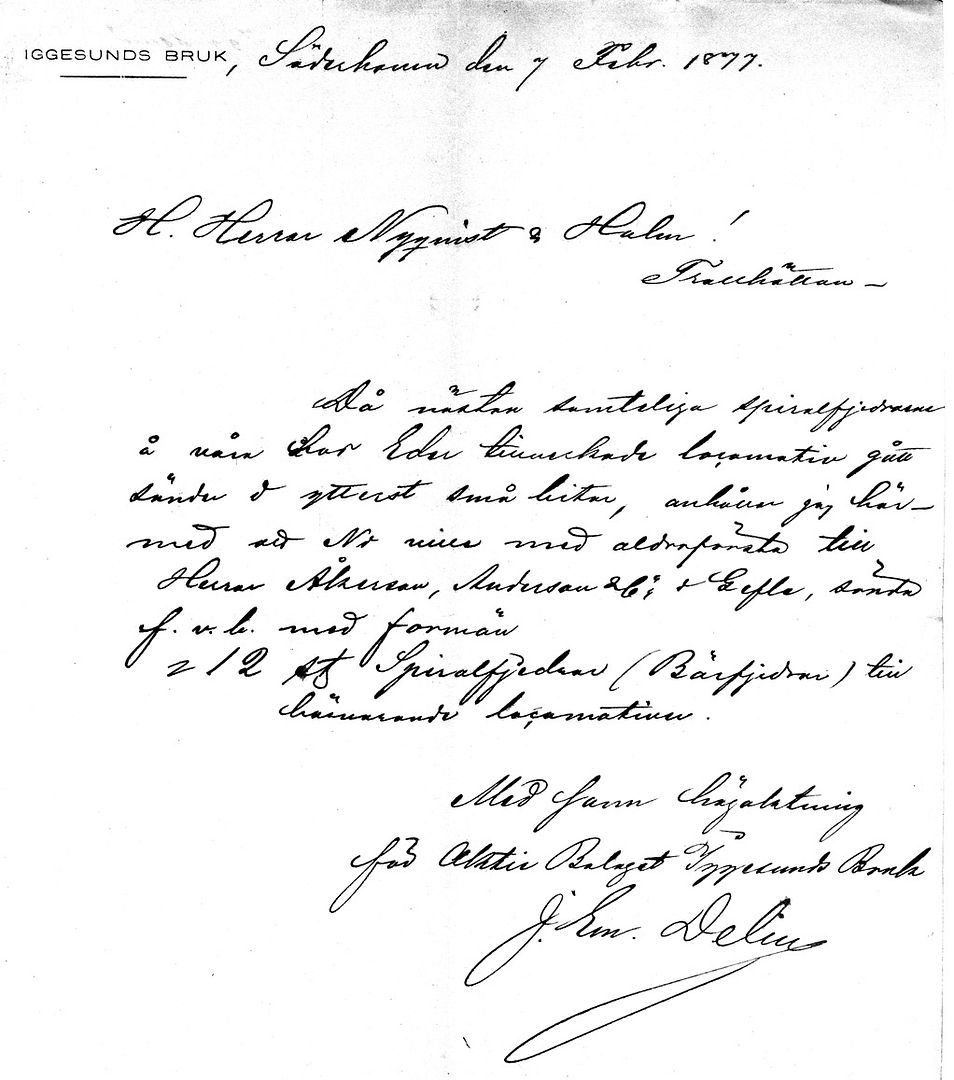 IGGESUNDS BRUK, Söderhamn den 7 Febr. 1877.
H. Herrar Nyqvist & Holm!
Trollhättan –
Då nästan samtelige spiralfjedrarne
å våra hos Eder tillverkade locomotiv gått
sönder i ytterst små bitar, anhåller jag här-
med att Ni ville med aldraförsta till
Herrar Åkerson, Anderson & Co; i Gefle, sända
f. v. b. med
12 st Spiralfjedrar (Bärfjedrar) till
härvarande locomotiver.
Med sann högaktning
för Aktie Bolaget Iggesunds Bruk
J. Em. Delin